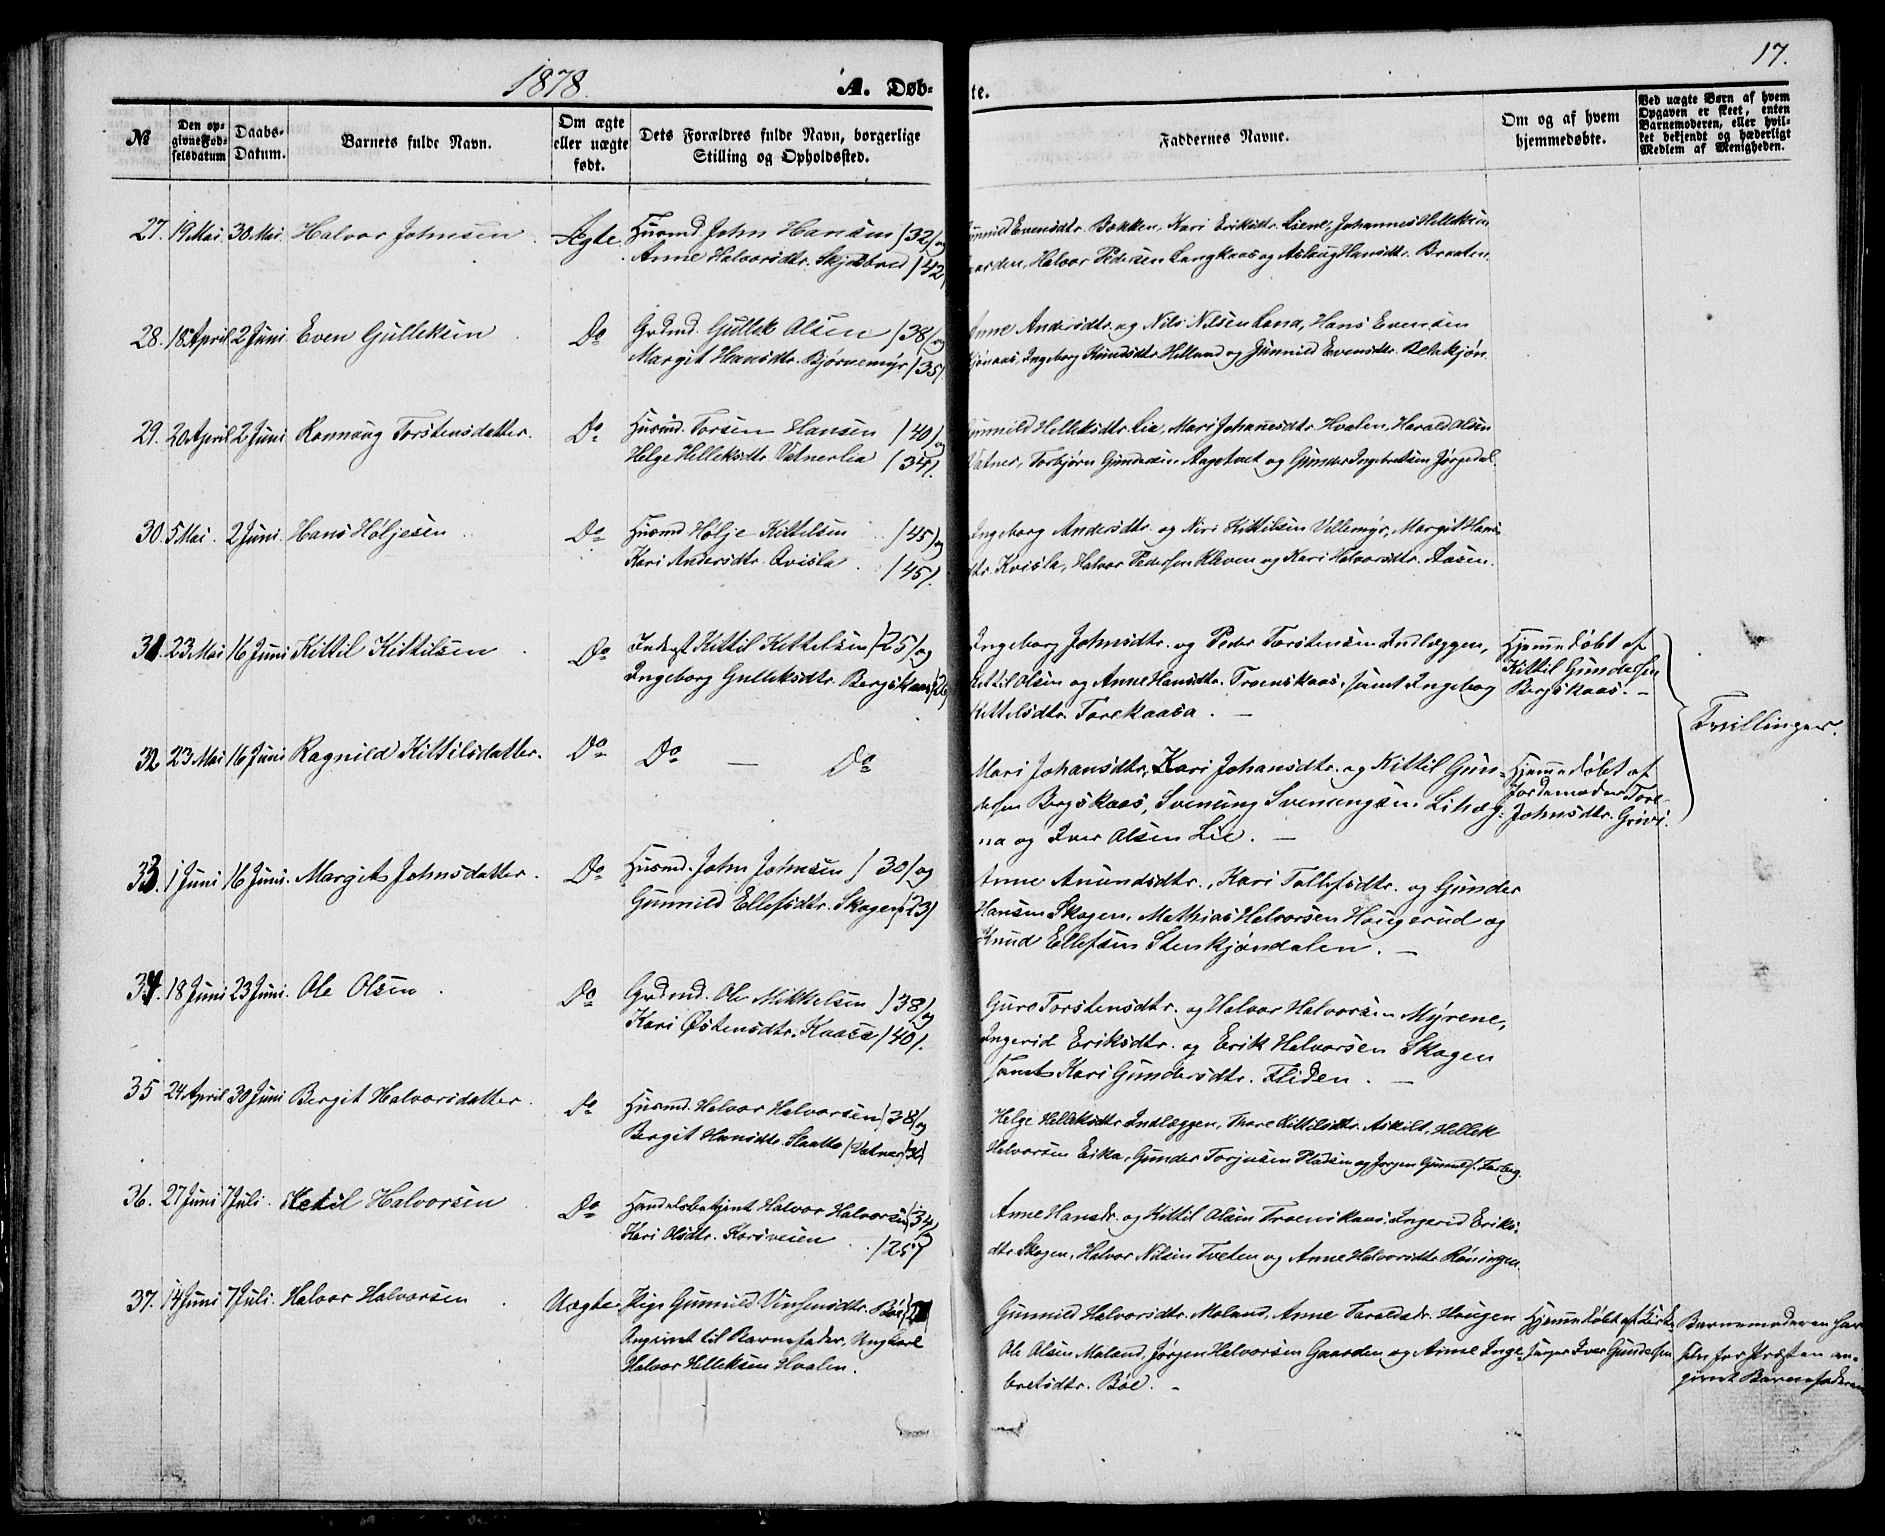 1878. A. Døb-
te. 17.
№ | Den opgivne Fødselsdatum | Daabs-Datum. | Barnets fulde Navn. | Om ægte eller uægte født. | Dets Forældres fulde Navn, borgerlige Stilling og Opholdssted. | Faddernes Navne. | Om og af hvem hjemmedøbte. | Ved uægte Børn af hvem Opgaven er skeet, enten Barnemoderen, eller hvilket bekjendt og hæderligt Medlem af Menigheden.
27. 19 Mai 30 Mai. Halvor Johnsen. Ægte. Husmd. John Hansen /32/ og
Anne Halvorsdtr. Skjelbred /42/
Gunnild Evensdtr. Bækken, Kari Eriksdtr. Liene, Johannes Helleksen
Gaarden, Halvor Pedersen Langkaas og Aslaug Hansdtr. Braaten.
28. 18 April 2 Juni Even Gulleksen Do Grdmd. Gullek Olsen /38/ og
Margit Hansdtr. Bjørnemyr /35/
Anne Andersdtr. og Nils Nilsen Lona, Hans Evensen
Ingeborg Knudsdtr. Helland og Gunnild Evensdtr.
29. 20 April 2 Juni Ronnaug Torstensdatter. Do Husmd. Torsen Hansen /40/ og
Helge Helleksdtr. Vatnerlia /34/.
Gunnild Helleksdtr. Lia, Mari Johansdtr. Hvalen, Harald Olsen
Vatner, Torbjørn Gundersen Aagetveit og Gunder Ingebretsen Jørgedal.
30. 5 Mai. 2 Juni. Hans Høljesen Do Husmd Hølje Kittelsen /45/ og
Kari Andersdtr. Qvisla. /45/.
Ingeborg Andersdtr. og Niri Kittilsen Villemyr, Margit Hans-
dtr. Kvisla, Halvor Pedersen Kleven og Kari Halvorsdtr. Aasen.
31. 23 Mai 16 Juni Kittil Kittilsen Do Inderst Kittil Kittelsen /25/ og
Ingeborg Gulleksdtr. Bergskaas /26/
Ingeborg Johnsdtr. og Peder Torstensen Indlæggen,
Kittil Olsen og Anne Hansdtr. Troenskaas, samt Ingeborg
Kittelsdtr. Torekaasa. —
Hjemmedøbt af
Kittil Gundersen
Bergskaas. —
Tvillinger.
32 23 Mai 16 Juni Ragnild Kittilsdatter. Do Do — Do
Mari Johansdtr., Kari Johansdtr. og Kittil Gun-
dersen Bergskaas, Svenung Svenungsen Lihæg-
na og Iver Olsen Lie. —
Hjemmedøbt af
Jordemoder Tore
Johnsdtr. Grivi.
33. 1 Juni 16 Juni. Margit Johnsdatter. Do Husmd. John Johnsen /30/ og
Gunnild Ellefsdtr. Skogen /23/
Anne Anundsdtr., Kari Tollefsdtr. og Gunder
Hansen Skogen, Mathias Halvorsen Haugerud og
Knud Ellefsen Stenkjøndalen. —
34. 18 Juni 23 Juni. Ole Olsen. Do Grdmd. Ole Mikkelsen /38/ og
Kari Østensdtr. Kaasa /40/.
Guro Torstensdtr. og Halvor Halvorsen Myrene,
Ingerid Eriksdtr. og Erik Halvorsen Skogen
samt Kari Gundersdtr. Fliden. —
35 24 April 30 Juni Bergit Halvorsdatter. Do Husmd. Halvor Halvorsen /38/ og
Bergit Hansdtr. Slaatta /Vatnar/
Helge Helleksdtr Indlæggen, Thore Kittilsdtr. Askilt, Hellek
Halvorsen Eika, Gunder Torjusen Pladsen og Jørgen Forberg.
36. 27 Juni 7 Juli. Ketil Halvorsen Do Handelsbetjent Halvor Halvorsen /34/ og
Kari Olsdtr. Korsveien /25/
Anne Hansdr. og Kittil Olsen Troenskaas, Ingerid Eriks-
dtr. Skogen, Halvor Nilsen Tveten og Anne Halvorsdtr. Røningen.
37. 14 Juni 7 Juli. Halvor Halvorsen Uægte Pige Gunnild Vinsensdtr. Bøe
Angivet til Barnefader, Ungkarl
Halvor Helleksen Hvalen.
Gunnild Halvorsdtr. Moland, Anne Taraldsdr. Haugen
Ole Olsen Moland, Jørgen Halvorsen Gaarden og Anne Inge-
bretsdtr. Bøe. —
Hjemmedøbt af Kirke-
sanger Iver Gundersen
Barnemoderen har
selv for Præsten an-
givet Barnefaderen